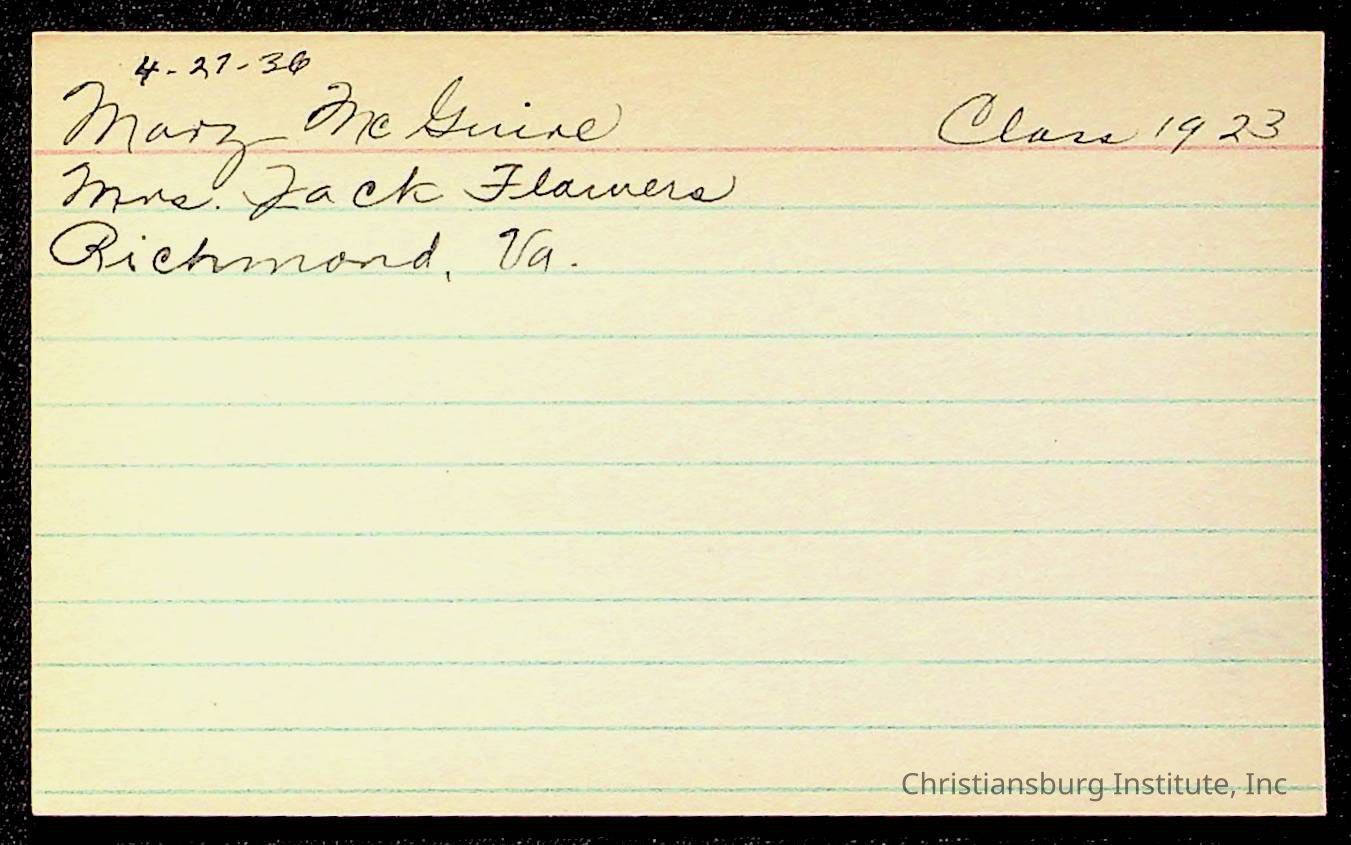 4-27-36
Mary McGuire Class 1923
Mrs. Jack Flowers
Richmond, Va.
Christiansburg Institute, Inc